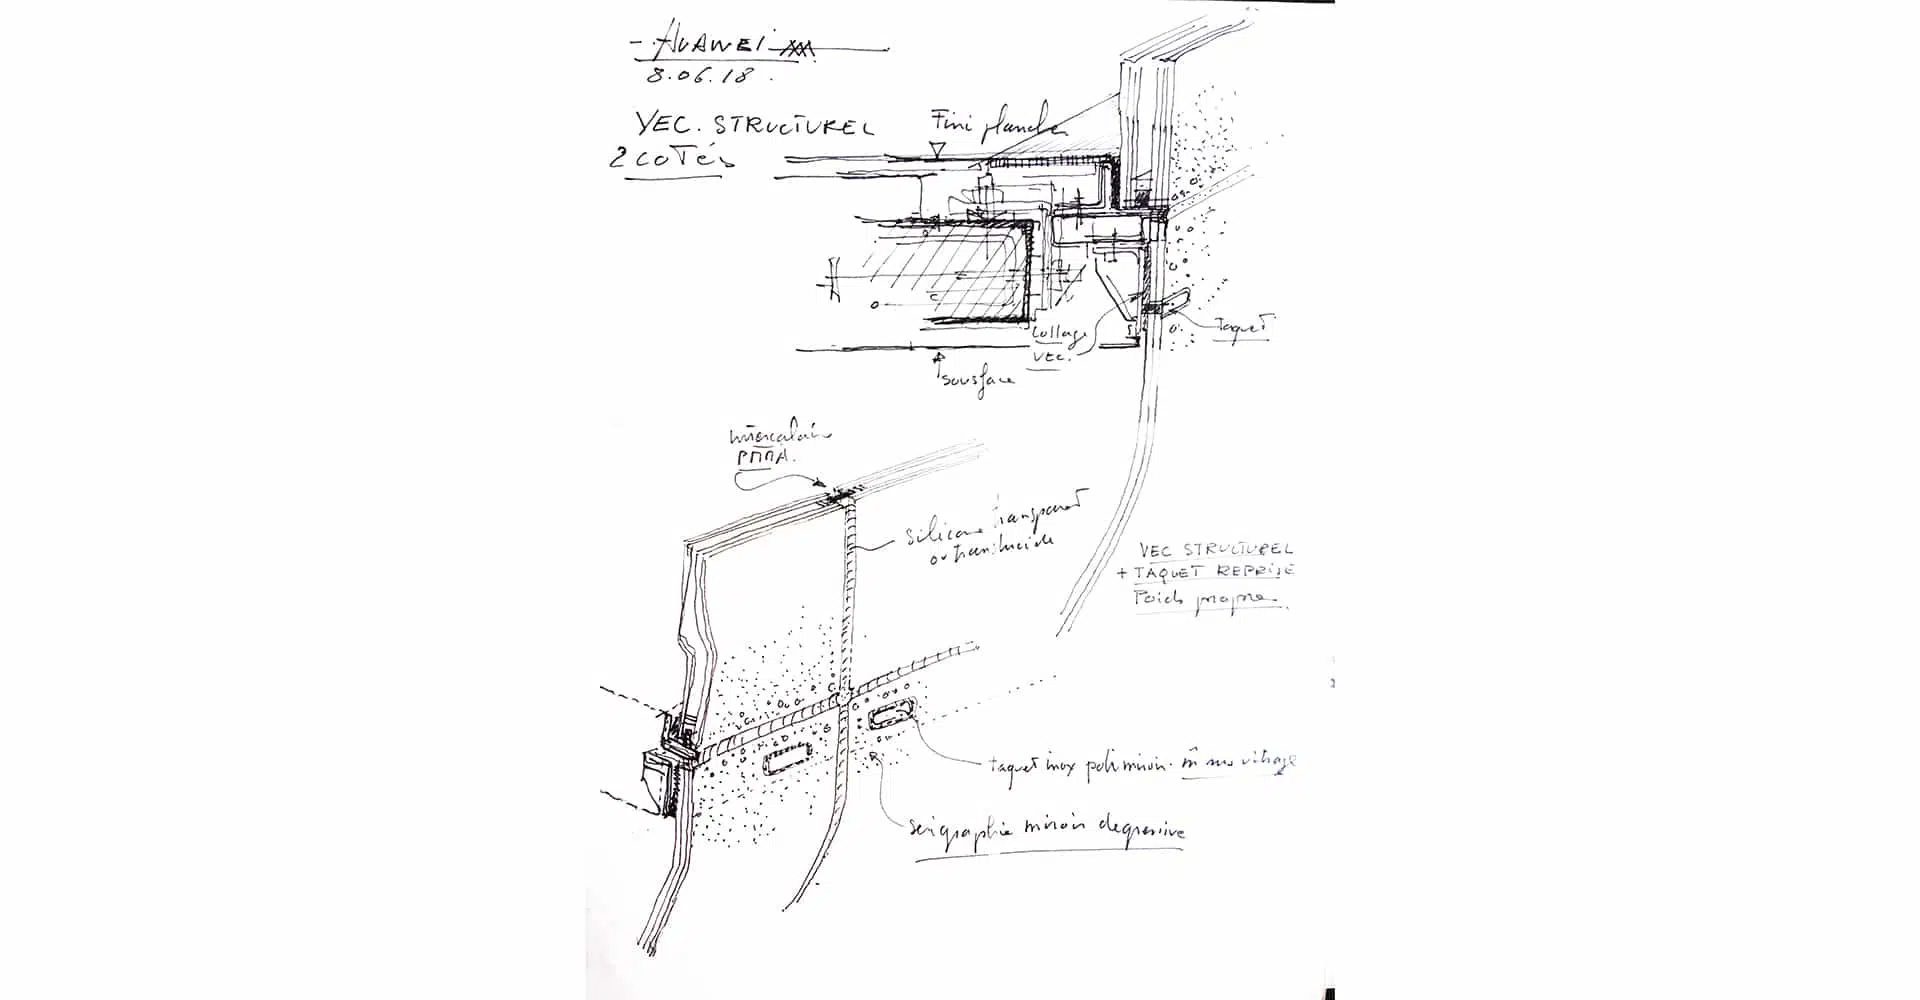 - HUAWEI
8.06.18.
VEC. STRUCTUREL
2 COTÉS
Fini plancher
Collage
VEC.
Taquet
sousface
Intercalaire
PMMA.
Silicone transparent
ou translucide
VEC STRUCTUREL
+ TAQUET REPRISE
Poids propre
taquet inox poli miroir. vitrage
Serigraphie miroir degressive